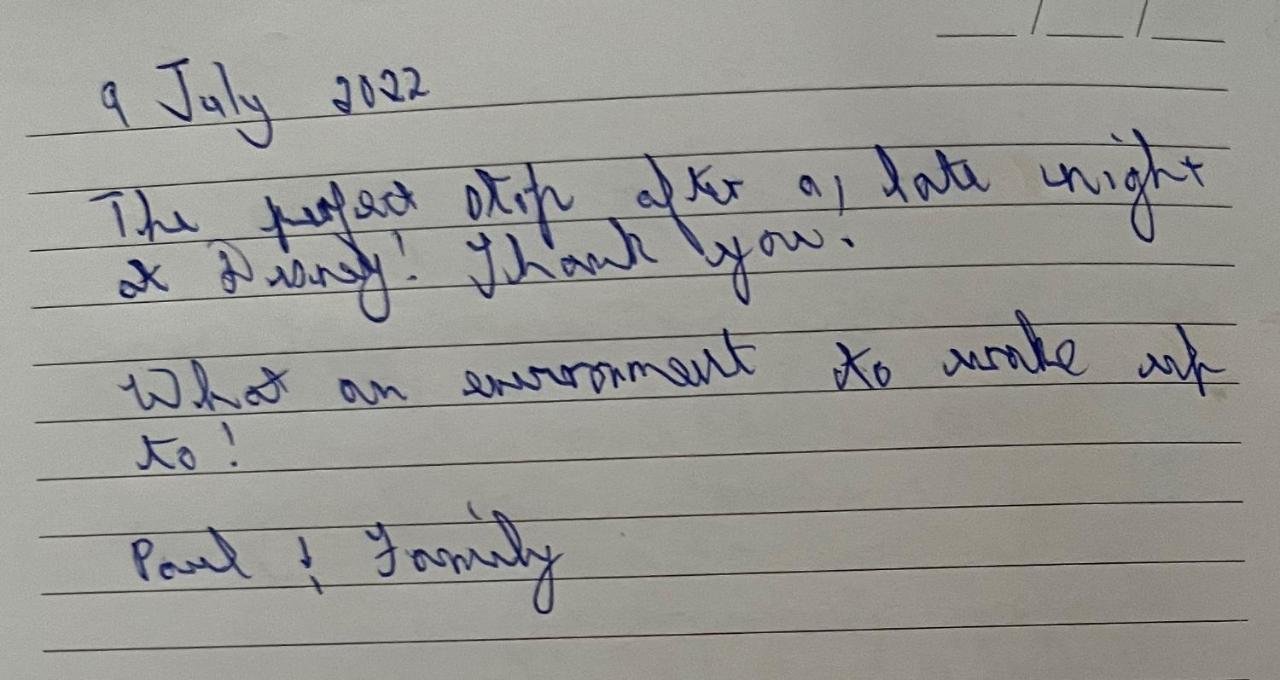 9 July 2022
The perfect stop after a late night
at Disney! Thank you.
What an environment to wake up
to!
Paul & Family